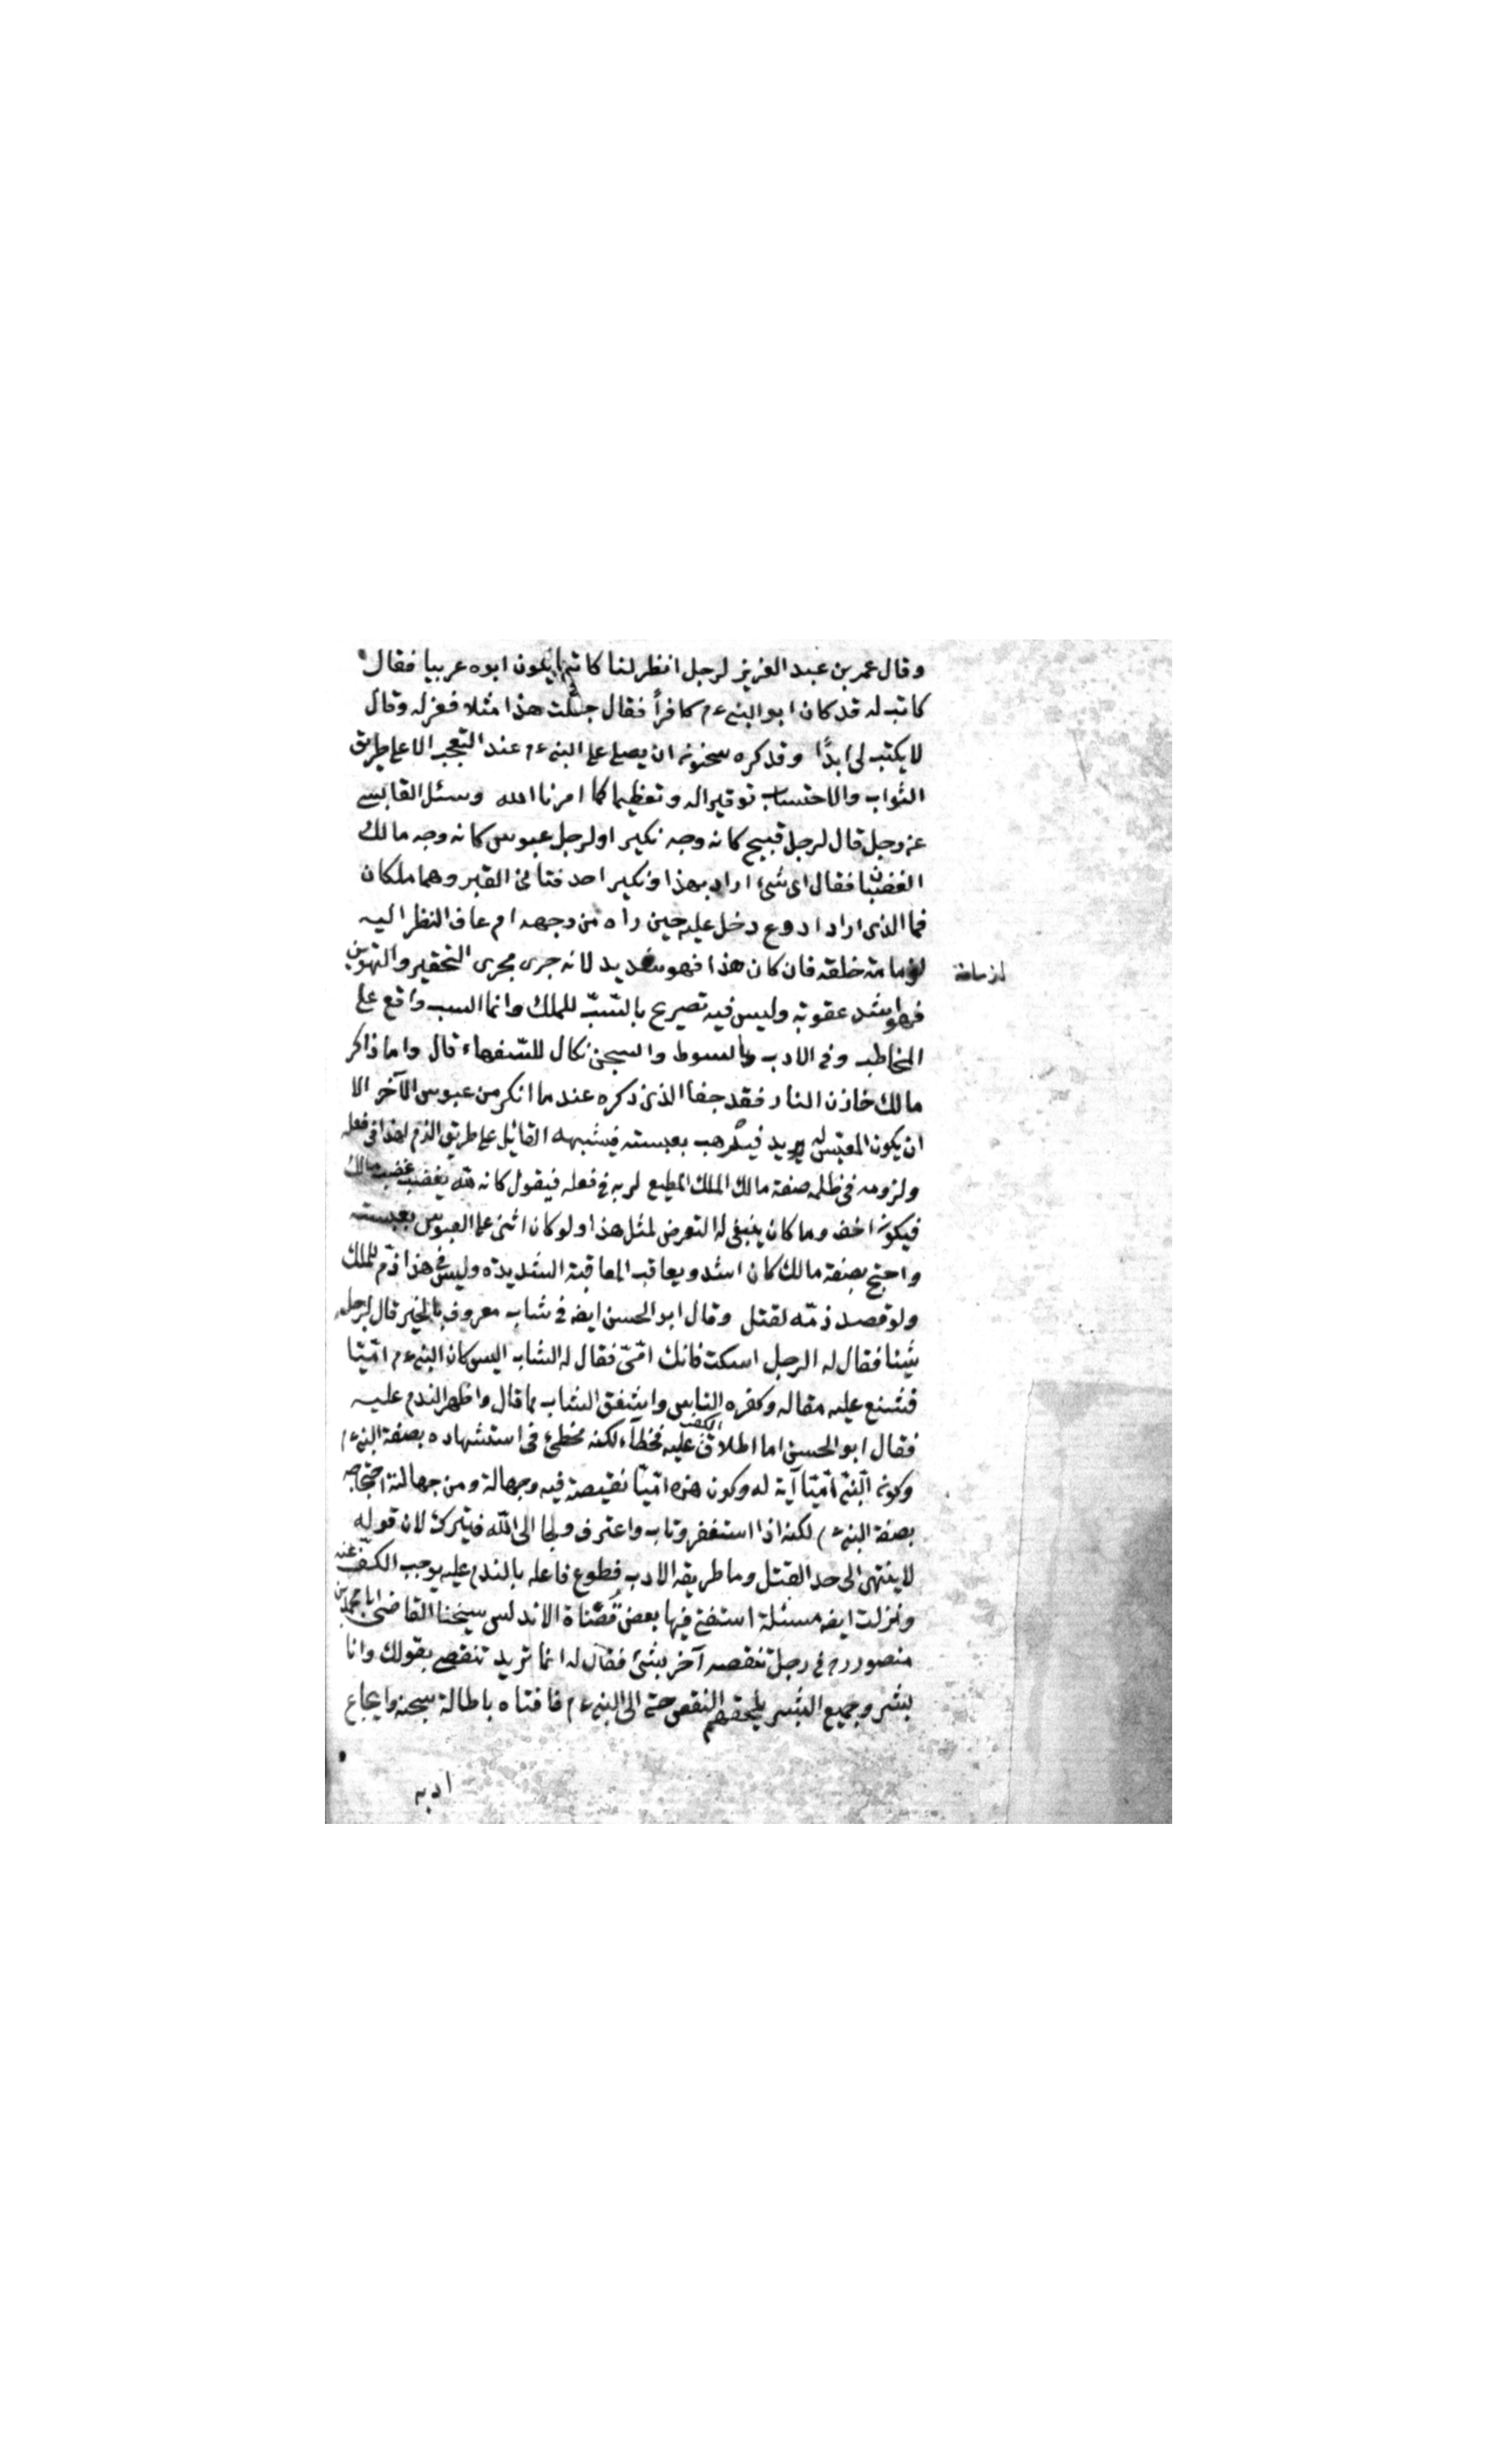 وقال عمر بن عبد العزيز لرجل انظر لنا كاتبا يكون ابوه عربيا فقال
كاتب له قد كان ابو النبى ءم كافرا فقال جعلت هذا مثلا فعزله وقال
لا يكتب لى ابدًا وقد كره سحنون ان يصلى على النبى ءم عند التعجب الا على طريق
الثواب والاحتساب توقيرا له وتعظيما كما امرنا الله وسئل القابسى
عن رجل قال لرجل قبيح كانه وجه نكير او لرجل عبوس كانه وجه مالك
الغضبان فقال اى شئ اراد بهذا ونكير احد فتانى القبر وهما ملكان
فما الذى اراد اروع دخل عليه حين راه من وجهه ام عاف النظر اليه
لدمامة خلقه فان كان هذا فهو شديد لانه جرى مجرى التحقير والتهوين
فهو اشد عقوبة وليس فيه تصريح بالسّبّ للملك وانما السب واقع على
المخاطب وفى الادب بالسوط والسجن نكال للسّفهاء قال واما ذاكر
مالك خازن النار فقد جفا الذى ذكره عند ما انكر من عبوس الآخر الا
ان يكون المعبّس له يد فيرهب بعبسته فيشبهه القائل على طريق الذم لهذا فى فعله
ولزومه فى ظلمه صفة مالك الملك المطيع لربه فى فعله فيقول كانه لله يغضب غضب مالك
فيكون اخف وما كان ينبغى له التعرض لمثل هذا ولو كان اثنى على العبوس بعبسته
واحتج بصفة مالك كان اشد ويعاقب المعاقبة الشديدة وليس فى هذا ذمّ للملك
ولو قصد ذمّه لقتل وقال ابو الحسن ايضه فى شاب معروف بالخير قال لرجل
شيئا فقال له الرجل اسكت فانك امّىّ فقال له الشاب اليس كان النبى ءم امّيّا
فشنع عليه مقاله وكفره الناس واشفق الشاب مما قال واظهر الندم عليه
فقال ابو الحسن اما اطلاق الكفر عليه فخطأ لكنه مخطئ فى استشهاده بصفة النبى ءم
وكون النبى امّيّا آية له وكون هذا امّيّا نقيصة فيه وجهالة ومن جهالته احتجاجه
بصفة النبى ءم لكنه اذا استغفر وتاب واعترف ولجا الى الله فيترك لان قوله
لا ينتهى الى حد القتل وما طريقه الادب فطوع فاعله بالندم عليه يوجب الكفّ عنه
ونزلت ايضه مسئلة استفتى فيها بعض قضاة الاندلس شيخنا القاضى ابا محمد بن
منصور رح فى رجل تنقصه آخر بشئ فقال له انما تريد تنقصى بقولك وانا
بشر وجميع البشر يلحقهم النقص حتى الى النبى ءم فافتاه باطالة سجنه وايجاع
ادبه